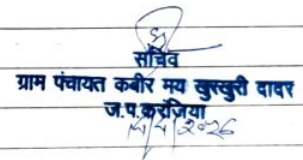 सचिव
ग्राम पंचायत कबीर मय खुरखुरी दादर
ज.प.करंजिया